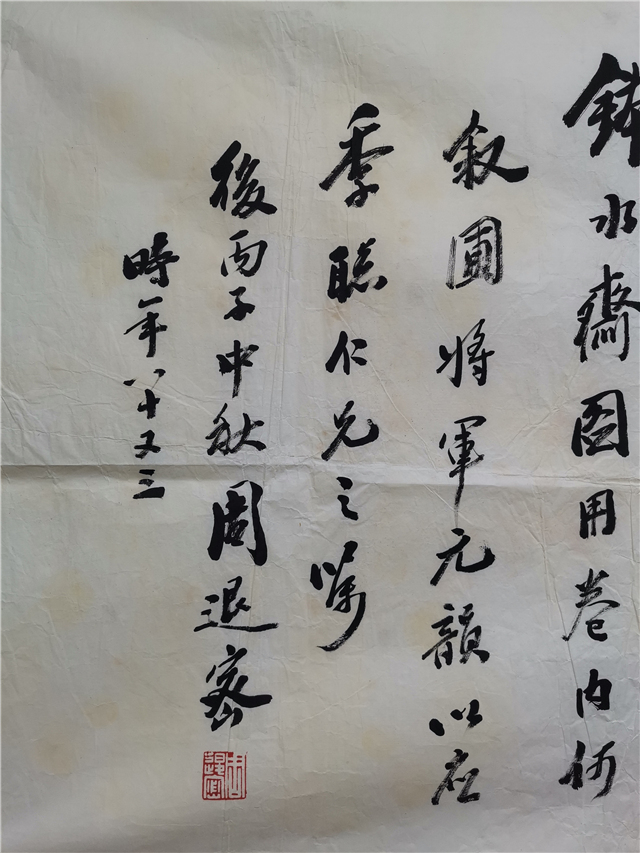 鉢水齋图用卷内何
叙圃将軍元韻以应
季聪仁兄之嘱
後丙子中秋周退密
時年八十又三
周退密